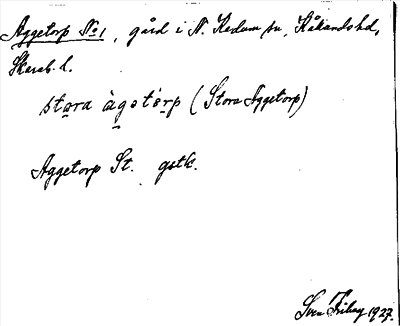 Aggetorp No 1, gård i N. Kedum sn, Kåkinds hd,
Skarab. l.
stora àgetórp (Stora Aggetorp)
Aggetorp St. gstk.
Sven Friberg 1927.